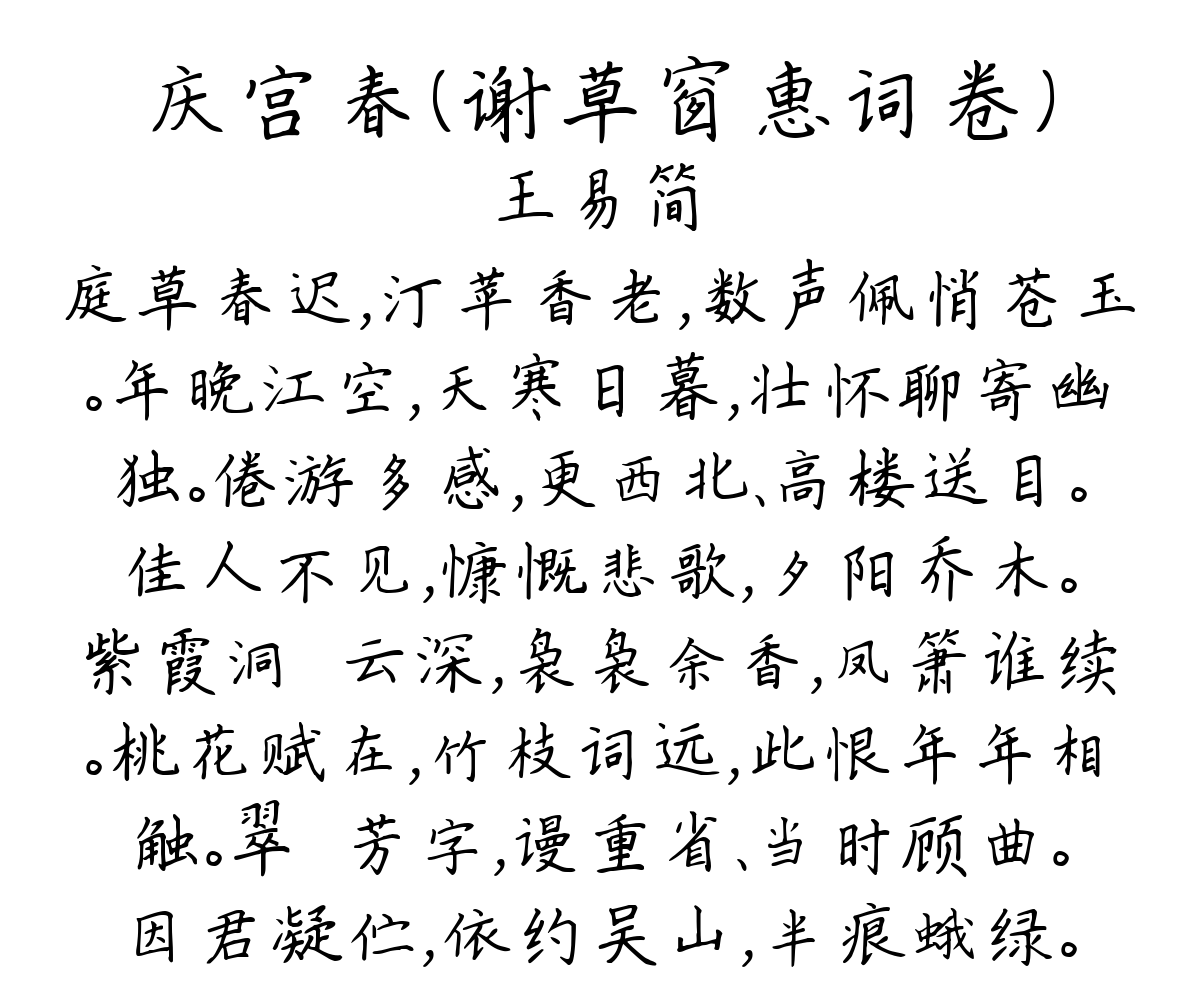 庆宫春(谢草窗惠词卷)
王易简
庭草春迟,汀苹香老,数声佩悄苍玉
。年晚江空,天寒日暮,壮怀聊寄幽
独。倦游多感,更西北、高楼送目。
佳人不见,慷慨悲歌,夕阳乔木。
紫霞洞 云深,袅袅余香,凤箫谁续
。桃花赋在,竹枝词远,此恨年年相
触。翠 芳字,谩重省、当时顾曲。
因君凝伫,依约吴山,半痕蛾绿。